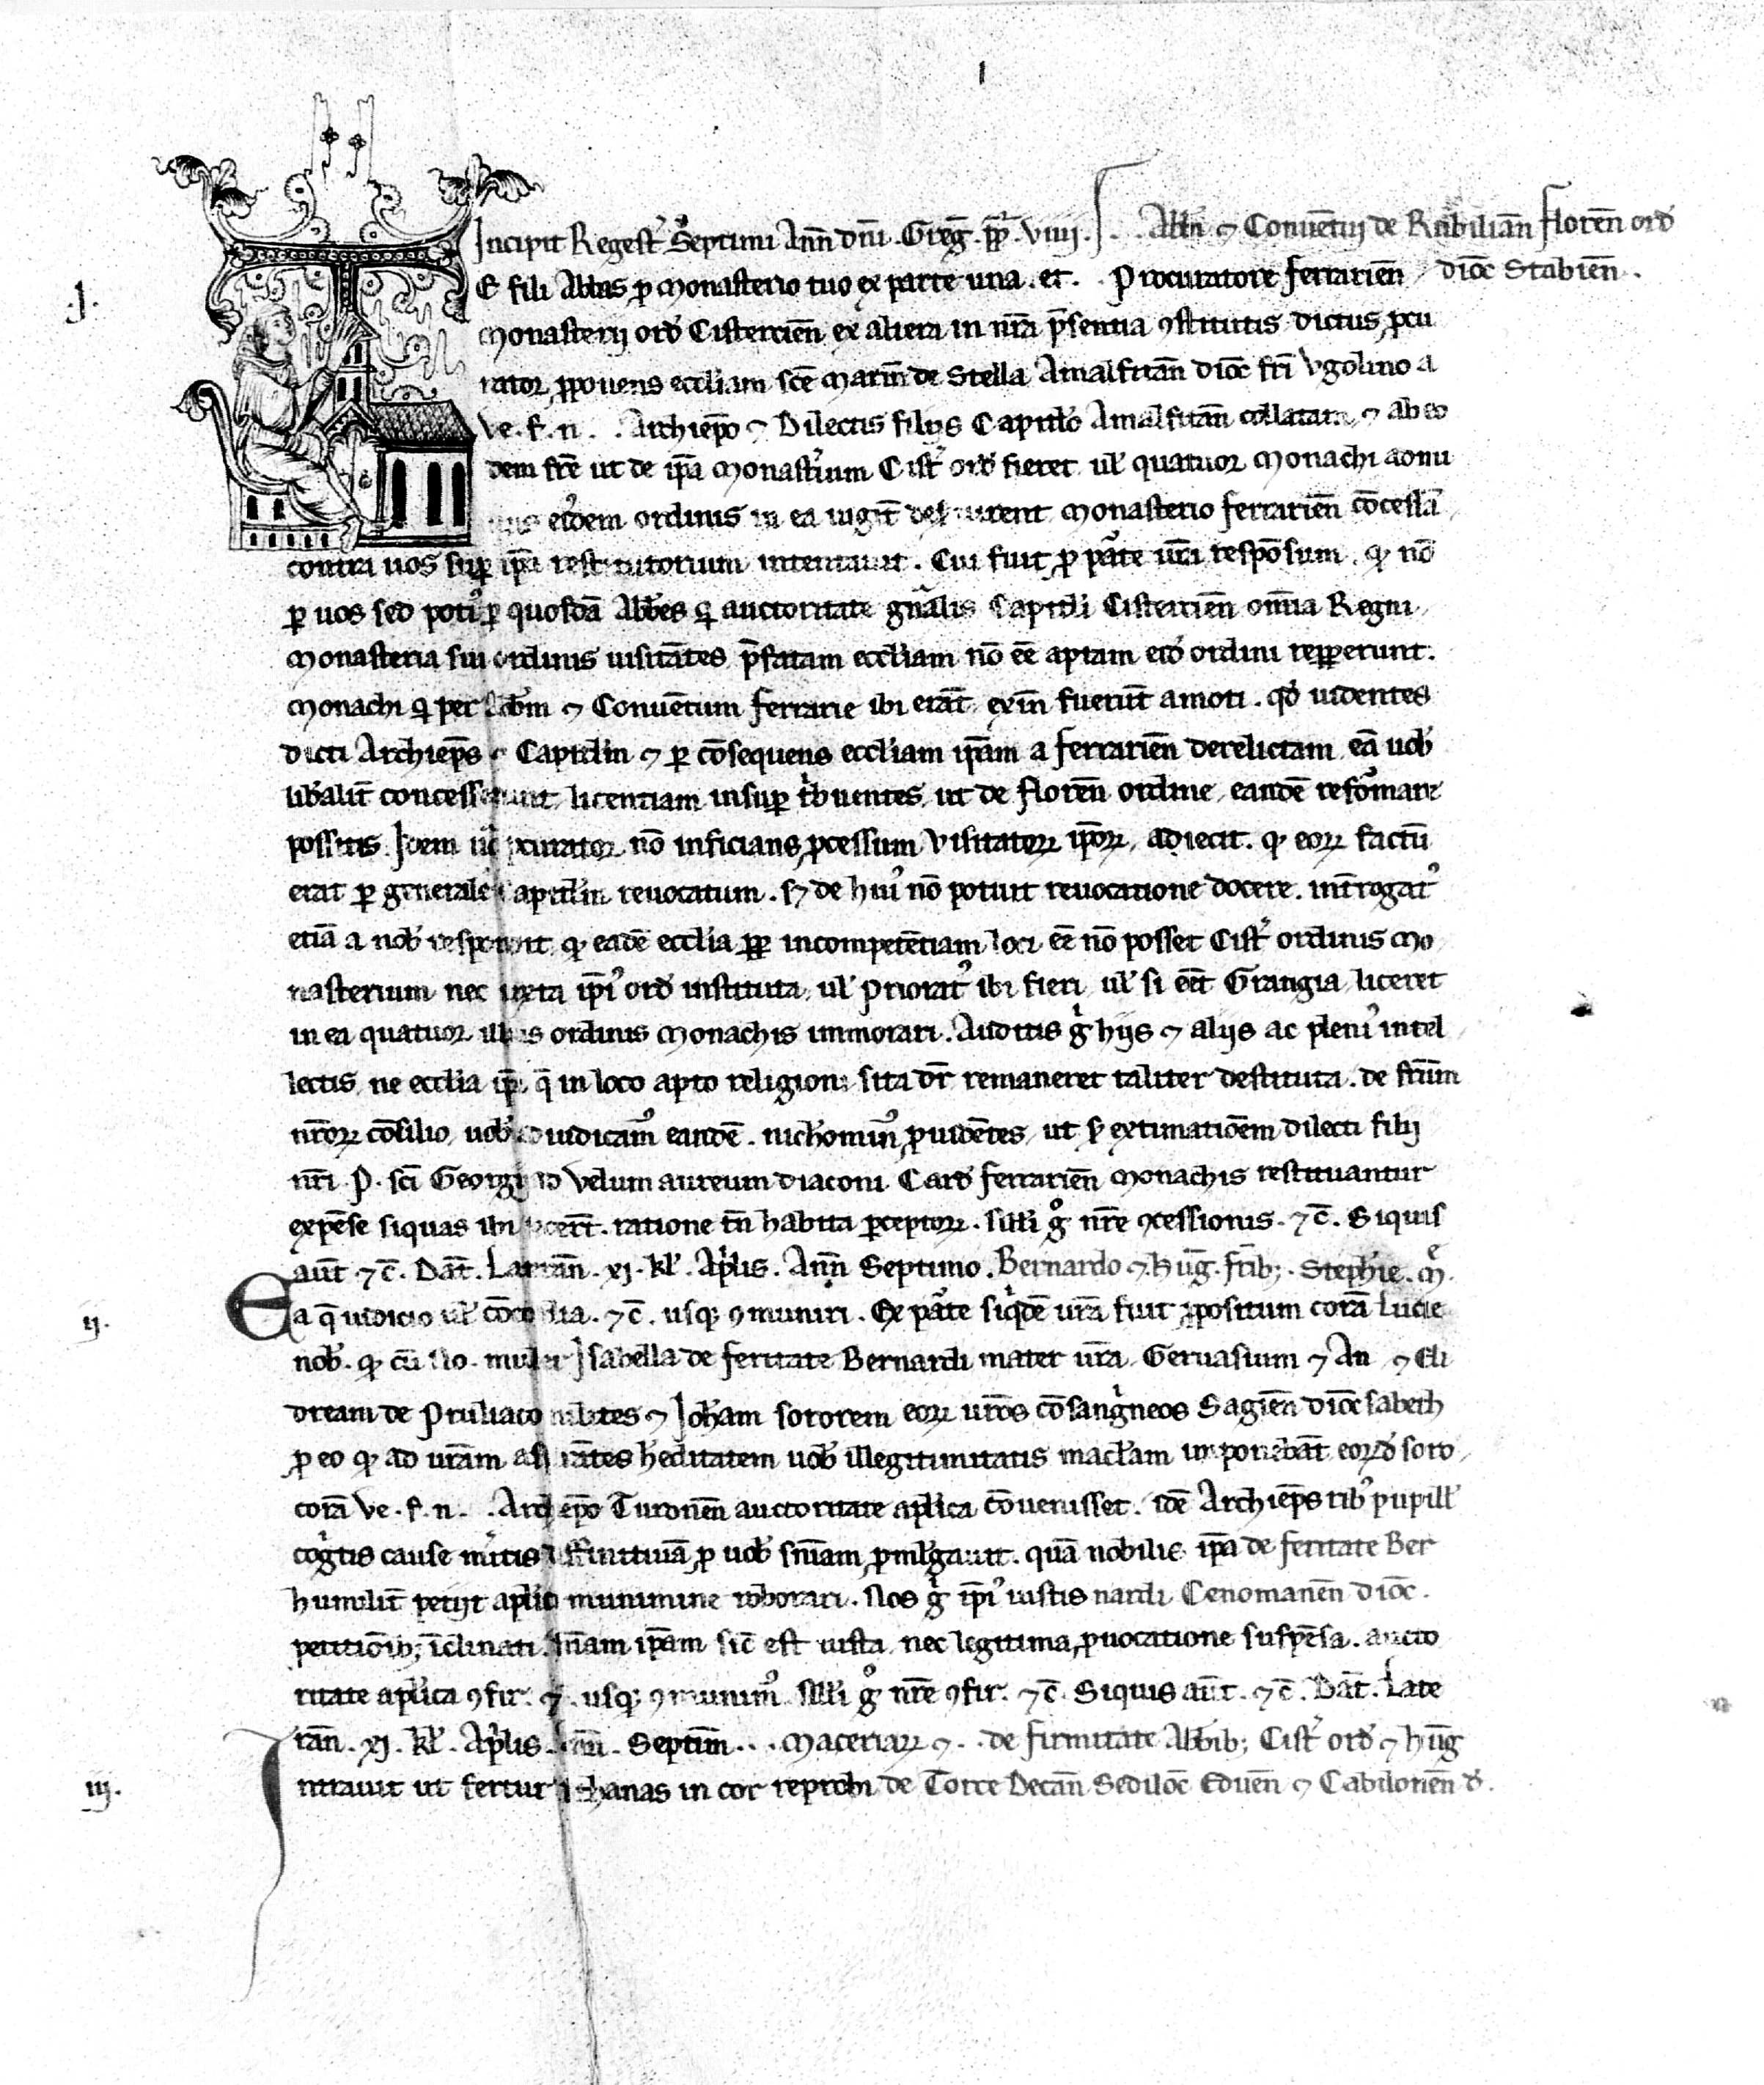 I
Incipit Regest̄ Septimi Anñ dñi . Greg̃ . p̄p̄ . viiij . . . Abb̄i ⁊ Conuētui de Rabiliañ Floreñ ord̄
E fili Abbas ꝓ Monasterio tuo ex parte una . et . . Procuratore ferrarieñ dioc̄ Stabieñ .
.j.
Monasterij ord̄ Cistercieñ ex altera in nr̄a p̄sentia ꝯstitutis dictus ꝓcu
rator ꝓponens eccl̄iam sc̄e Marie de Stella Amalfitañ dioc̄ fr̄i Vgolino a
Ve . f . n . . Archiep̄o ⁊ Dilectis filijs Capitl̄o Amalfitañ collatam ⁊ ab eo
dem fr̄e ut de ip̄a Monast̄ium Cist̄ ord̄ fieret ul̄ quatuor Monachi ad mi
eiꝰdem ordinis in ea iugit̄ Monasterio ferrarieñ cōcessā
contra uos suꝑ ip̄a restitutorium intentauit . Cui fuit ꝓ parte ur̄a respōsum . ꝙ nō
ꝑ uos sed potiꝰ ꝑ quosdā Abb̄es qͥ auctoritate gn̄alis Capitl̄i Cistercieñ om̄ia Regni
Monasteria sui ordinis uisitātes p̄fatam eccl̄iam nō eē aptam eid̄ ordini repp̄erunt .
Monachi qͥ per Abb̄em ⁊ Conuētum ferrarie ibi erāt exiñ fuerūt amoti . qd̄ uidentes
dicti Archiep̄s ⁊ Capitl̄m ⁊ ꝑ cōsequens eccl̄iam ip̄am a ferrarieñ derelictam eā uob̄
lib̄alit̄ concesserunt licentiam insuꝑ tͥbuentes ut de Floreñ ordine eandē refōmare
possitis . Idem u͛o ꝓcurator nō inficians ꝓcessum Visitatoꝝ ip̄oꝝ , adiecit . ꝙ eoꝝ factū
erat ꝑ generale Capitl̄m reuocatum . sꝫ de huiꝰ nō potuit reuocatione docere . int̄rogatꝰ
etiā a nob̄ respondit ꝙ eadē eccl̄ia ꝓꝑ incompetētiam loci eē nō posset Cist̄ ordinis Mo
nasterium nec iuxta ip̄iꝰ ord̄ instituta ul̄ Prioratꝰ ibi fieri ul̄ si eēt Grangia liceret
in ea quatuor illius ordinis Monachis immorari . Auditis gͥ hijs ⁊ alijs ac pleniꝰ intel
lectis ne eccl̄ia ip̄a q̄ in loco apto religioni sita dr̄ remaneret taliter destituta . de fr̄um
nr̄oꝝ cōsilio uob̄ adiudicamꝰ eandē . nichōminꝰ ꝓuidētes ut ẜ extimatiōem dilecti filij
nr̄i . P . sc̄i Georgij ad Velum aureum diaconi Card̄ ferrarieñ Monachis restituantur
expēse siquas ibi fecerīt . ratione tñ habita ꝑceptoꝝ . nll̄i gͦ nr̄e ꝯcessionis . ⁊c̄ . Siquis
aūt ⁊c̄ . Dat̄ . Laterañ . xj . kl̄ . Apͥlis . Anñ Septimo . Bernardo ⁊ hug̃ . fr̄ib; . Stephīe . Mͬ
ij.
Ea q̄ iudicio ul̄ cōcordia . ⁊c̄ . usqꝫ ꝯmuniri . Ex parte siqͥdē ur̄a fuit ꝓpositum corā Lucie
nob̄ . ꝙ cū No . mulier Isabella de feritate Bernardi mater ur̄a Geruasium ⁊ An ⁊ Eli
dream de Pruliaco milites ⁊ Ioh̄am sororem eoꝝ ur̄os cōsangͥneos Sagieñ dioc̄ sabeth
ꝑ eo ꝙ ad ur̄am aspirātes h̄editatem uob̄ illegitimitatis mac̄lam imponebāt eoꝝd̄ soro
corā Ve . f . n . . Archiep̄o Turoneñ auctoritate ap̄lica cōuenisset . idē Archiep̄s rib̄ pupill̄
cogͥtis cause mͥtis diffinitiuā ꝓ uob̄ sn̄iam ꝓmlgauit . quā nobilis ip̄a de feritate Ber
humilit̄ petijt ap̄lico munimine roborari . Nos gͥ ip̄iꝰ iustis nardi Cenomaneñ dioc̄ .
petitiōib; īclinati sn̄iam ip̄am sic̄ est iusta nec legitima ꝓuocatione suspēsa . aucto
ritate ap̄lica ꝯfir . ⁊ . usqꝫ ꝯmunimꝰ . Nll̄i gͦ nr̄e ꝯfir . ⁊c̄ Siquis aūt . ⁊c̄ . Dat̄ . Late
rañ . xj . kl̄ . Apͥlis . Anñ . Septim̄ . . . Maceriaꝝ ⁊ . . de firmitate Abb̄ib; Cist̄ ord̄ ⁊ hug̃
iij.
Intrauit ut fertur Sathanas in cor reprobi de Torce Decañ Sediloc̄ Edueñ ⁊ Cabiloneñ d̄ .